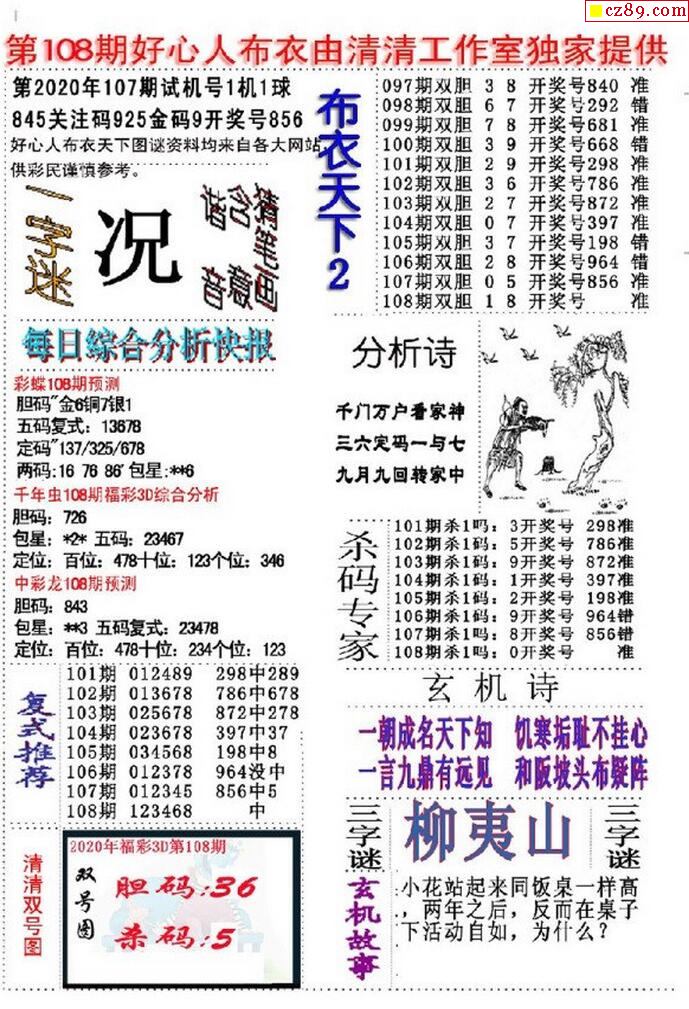 cz89.com
第108期好心人布衣由清清工作室独家提供
第2020年107期试机号1机1球
845关注码925金码9开奖号856
好心人布衣天下图谜资料均来自各大网站,
供彩民谨慎参考。
一字迷
况
猜笔画
含意
谐音
布衣天下2
097期双胆 3 8 开奖号840 准
098期双胆 6 7 开奖号292 错
099期双胆 7 8 开奖号681 准
100期双胆 3 9 开奖号668 错
101期双胆 2 9 开奖号298 准
102期双胆 3 6 开奖号786 准
103期双胆 2 7 开奖号872 准
104期双胆 0 7 开奖号397 准
105期双胆 3 7 开奖号198 错
106期双胆 2 8 开奖号964 错
107期双胆 0 5 开奖号856 准
108期双胆 1 8 开奖号 准
每日综合分析快报
彩蝶108期预测
胆码"金6铜7银1
五码复式：13678
定码"137/325/678
两码:16 76 86' 包星:**6
千年虫108期福彩3D综合分析
胆码：726
包星：*2* 五码：23467
定位：百位：478十位：123个位：346
中彩龙108期预测
胆码：843
包星：**3 五码复式：23478
定位：百位：478十位：234个位：123
分析诗
千门万户看家神
三六定码一与七
九月九回转家中
杀码专家
101期杀1吗：3开奖号 298准
102期杀1吗：5开奖号 786准
103期杀1吗：9开奖号 872准
104期杀1吗：1开奖号 397准
105期杀1吗：2开奖号 198准
106期杀1吗：9开奖号 964错
107期杀1吗：8开奖号 856错
108期杀1吗：0开奖号 准
复式推荐
101期 012489 298中289
102期 013678 786中678
103期 025678 872中278
104期 023678 397中37
105期 034568 198中8
106期 012378 964没中
107期 012345 856中5
108期 123468 中
玄机诗
一朝成名天下知 饥寒垢耻不挂心
一言九鼎有远见 和阪坡头布疑阵
三字谜
柳夷山
三字谜
清清双号图
2020年福彩3D第108期
双号图
胆码:36
杀码:5
玄机故事
小花站起来同饭桌一样高
，两年之后，反而在桌子
下活动自如，为什么？